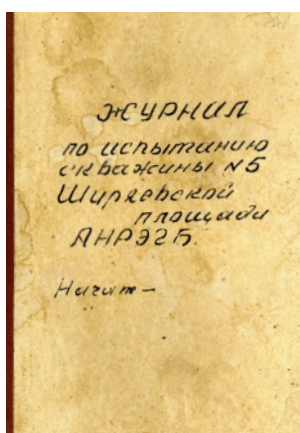 ЖУРНАЛ
по испытанию
скважины №5
Ширяевской
площади
АНРЭГБ.
Начат —